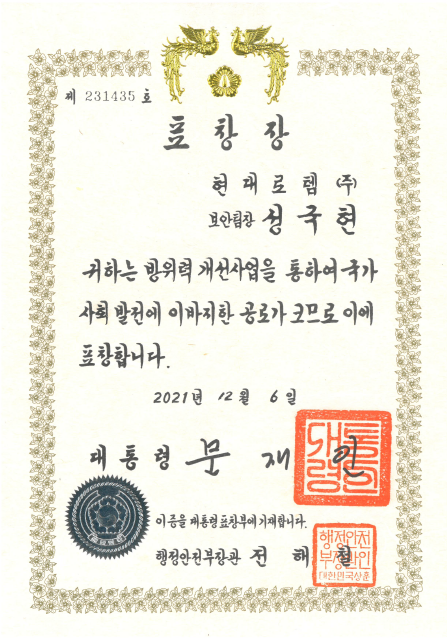 제 231435 호
표창장
현대로템 (주)
보안팀장 성국현
귀하는 방위력 개선사업을 통하여 국가
사회 발전에 이바지한 공로가 크므로 이에
표창합니다.
2021년 12월 6일
대통령 문재인
이 증을 대통령표창부에 기재합니다.
행정안전부장관 전해철